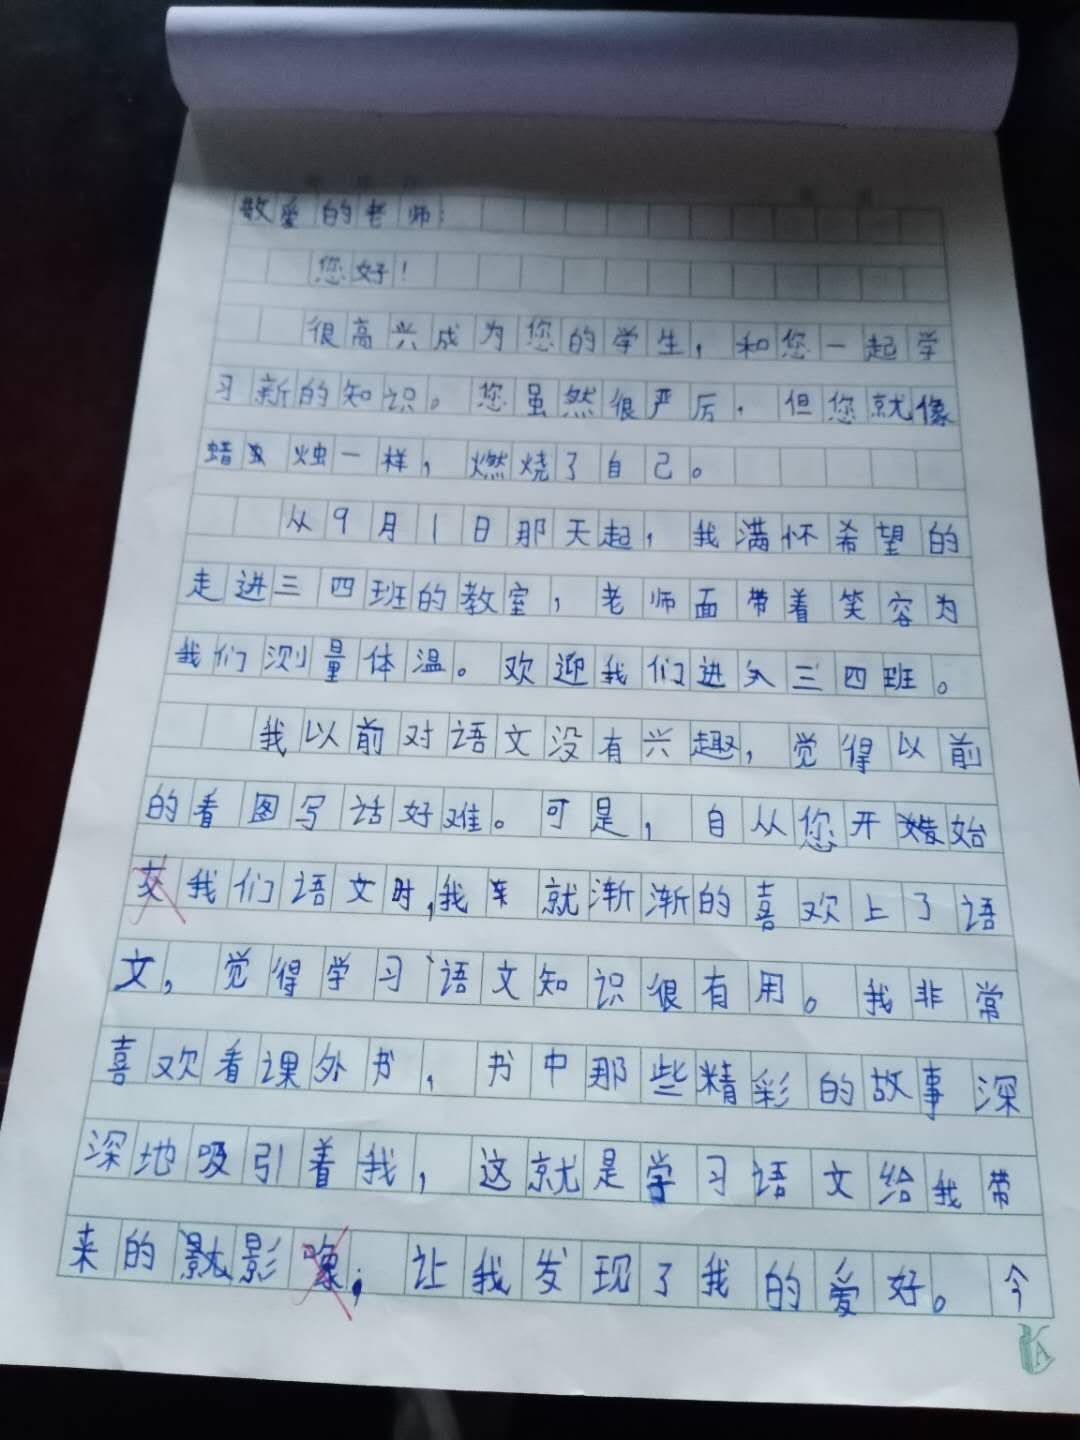 敬爱的老师:
您好!
很高兴成为您的学生,和您一起学
习新的知识。您虽然很严厉,但您就像
蜡烛一样,燃烧了自己。
从9月1日那天起,我满怀希望的
走进三四班的教室,老师面带着笑容为
我们测量体温。欢迎我们进入三四班。
我以前对语文没有兴趣,觉得以前
的看图写话好难。可是,自从您开始
我们语文时,我就渐渐的喜欢上了语
文,觉得学习语文知识很有用。我非常
喜欢看课外书,书中那些精彩的故事深
深地吸引着我,这就是学习语文给我带
来的影,让我发现了我的爱好。今